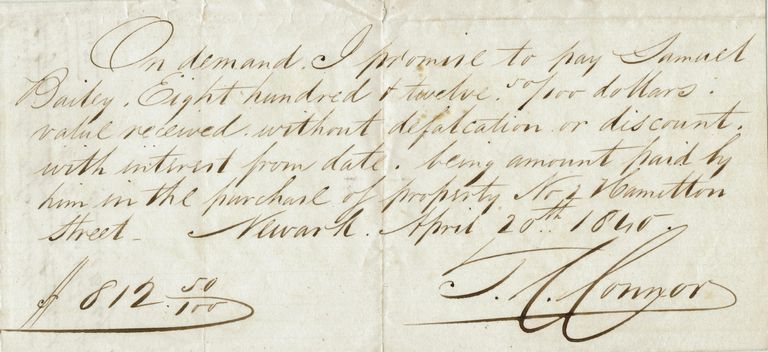 On demand. I promise to pay Samuel
Bailey. Eight hundred & twelve. 50/100 dollars.
value received. without defalcation or discount.
with interest from date. being amount paid by
him in the purchase of property No 2 Hamilton
Street - Newark. April 20th. 1840.
$ 812 50/100
Connor